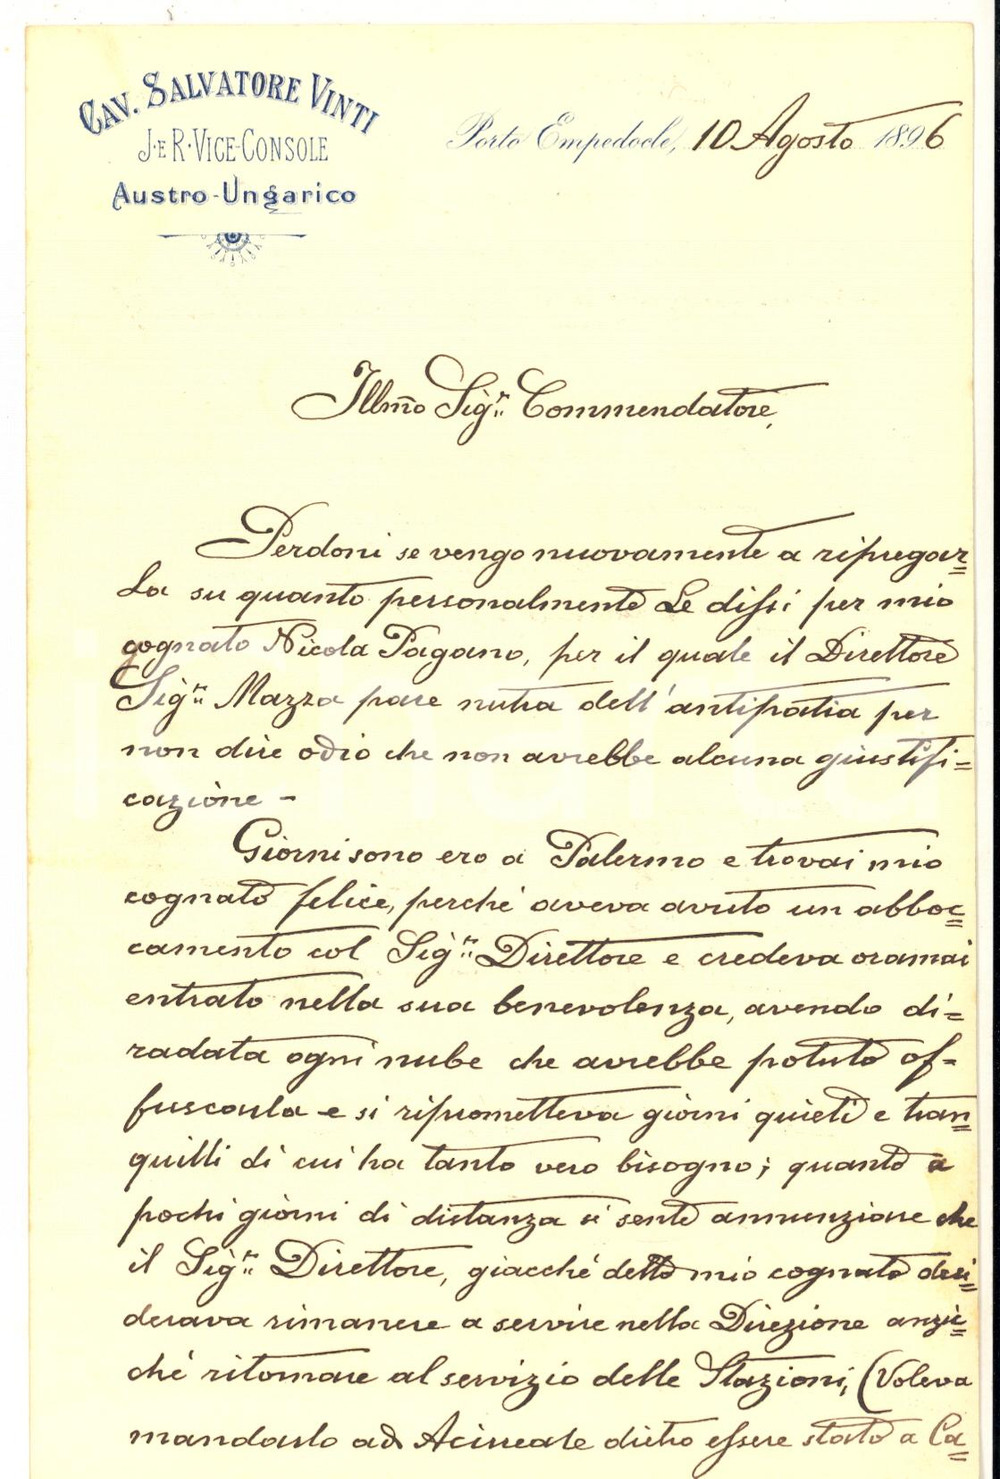 CAV. SALVATORE VINTI
J. E R. VICE-CONSOLE
Austro-Ungarico
Porto Empedocle, 10 Agosto 1896
Illmo Sigr. Commendatore,
Perdoni se vengo nuovamente a ripregar=
La su quanto personalmente Le dissi per mio
cognato Nicola Pagano, per il quale il Direttore
Sigr. Mazza pare nutra dell'antipatia per
non dire odio che non avrebbe alcuna giustifi=
cazione -
Giorni sono ero a Palermo e trovai mio
cognato felice, perché aveva avuto un abboc=
camento col Sigr. Direttore e credeva oramai
entrato nella sua benevolenza, avendo di=
radata ogni nube che avrebbe potuto of=
fuscarla e si riprometteva giorni quieti e tran=
quilli di cui ha tanto vero bisogno; quanto a
pochi giorni di distanza si sente annunziare che
il Sigr. Direttore, giacché detto mio cognato desi=
derava rimanere a servire nella Direzione anzi=
ché ritornare al servizio delle Stazioni, (Voleva
mandarlo ad Acireale dietro essere stato a Ca=